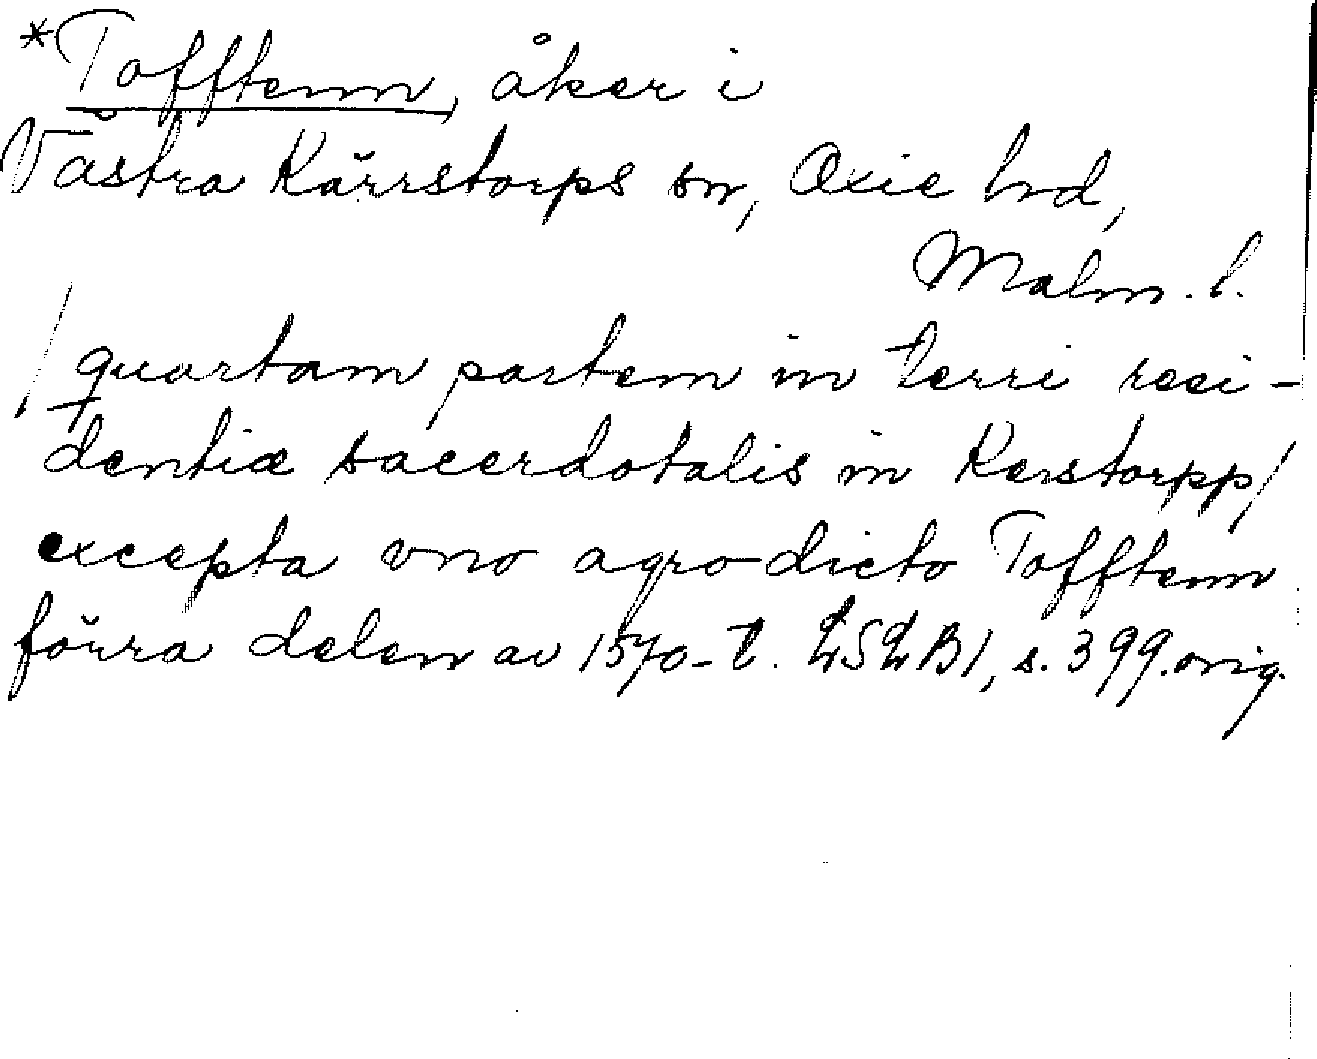 *Tofftenn, åker i
Västra Kärrstorps sn, Oxie hrd,
Malm. l.
/quartam partem in terri resi-
dentiæ sacerdotalis in Kerstorpp/
excepta vno agro dicto Tofftenn
förra delen av 1570-t. LSLB1, s. 399. orig.